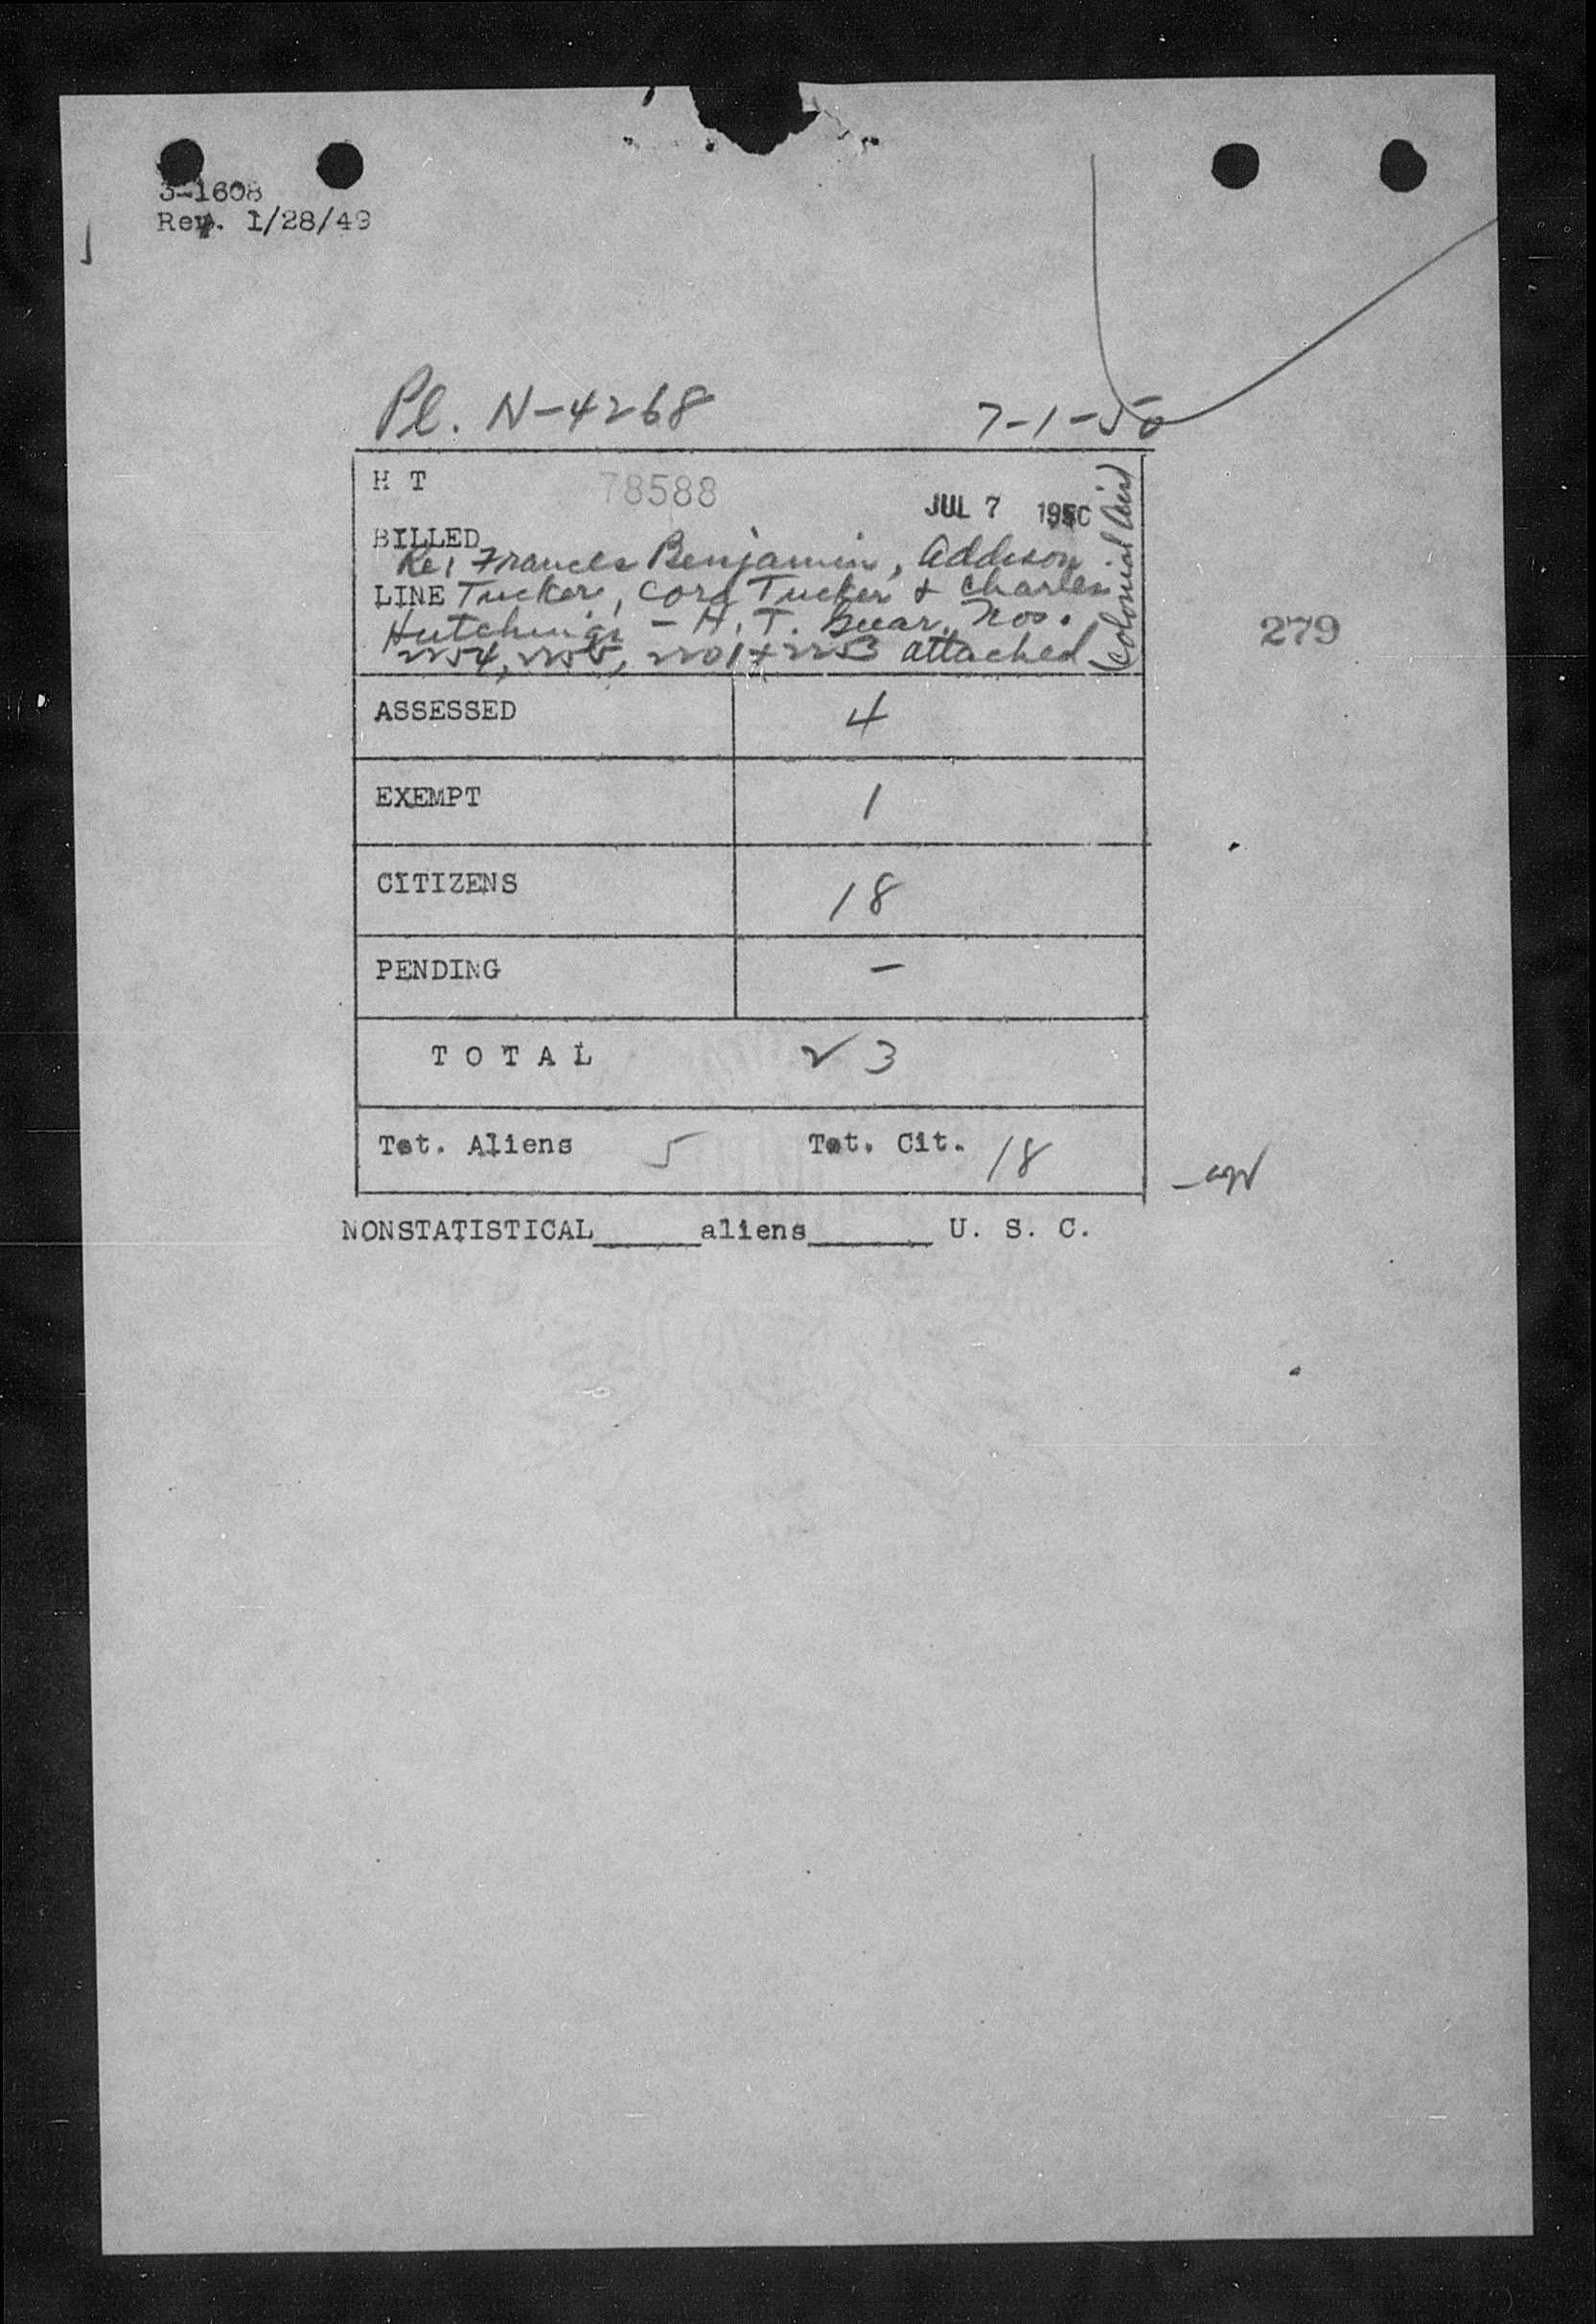 3-1608
Rev. 1/28/49
Pl. N-4268 7-1-50
H T 78588 JUL 7 1950
BILLED
Re: Frances Benjamin, Addison
LINE Tucker, Cora Tucker & Charles
Hutchings - H. T. Guar. Nos.
2254, 2255, 2201 + 2253 attached
Colonial Air
279
ASSESSED 4
EXEMPT 1
CITIZENS 18
PENDING -
T O T A L 23
Tot. Aliens 5 Tot. Cit. 18
NONSTATISTICAL_____aliens______ U. S. C.